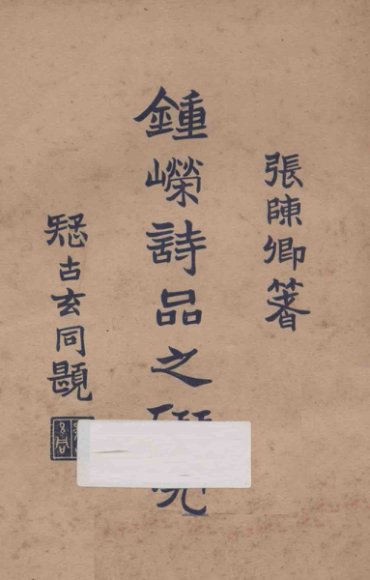 張陳卿箸
鍾嶸詩品之
疑古玄同題